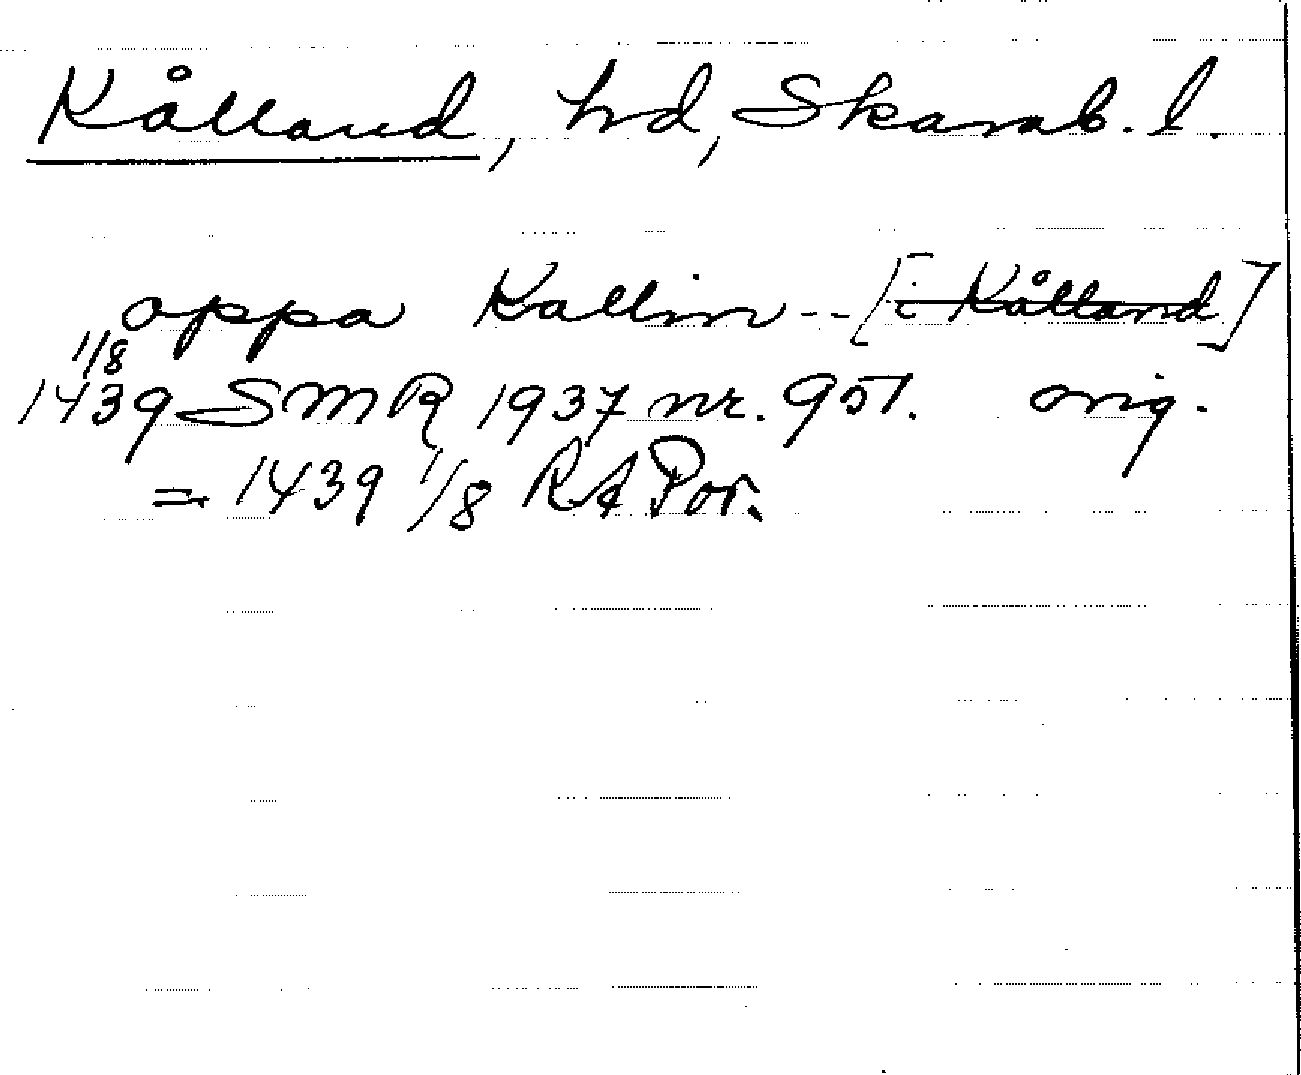 Kålland, hd, Skarab. l.
oppa Kallin -- [i Kålland]
1/8
1439 SMR 1937 nr. 951. orig.
= 1439 1/8 RA Por.